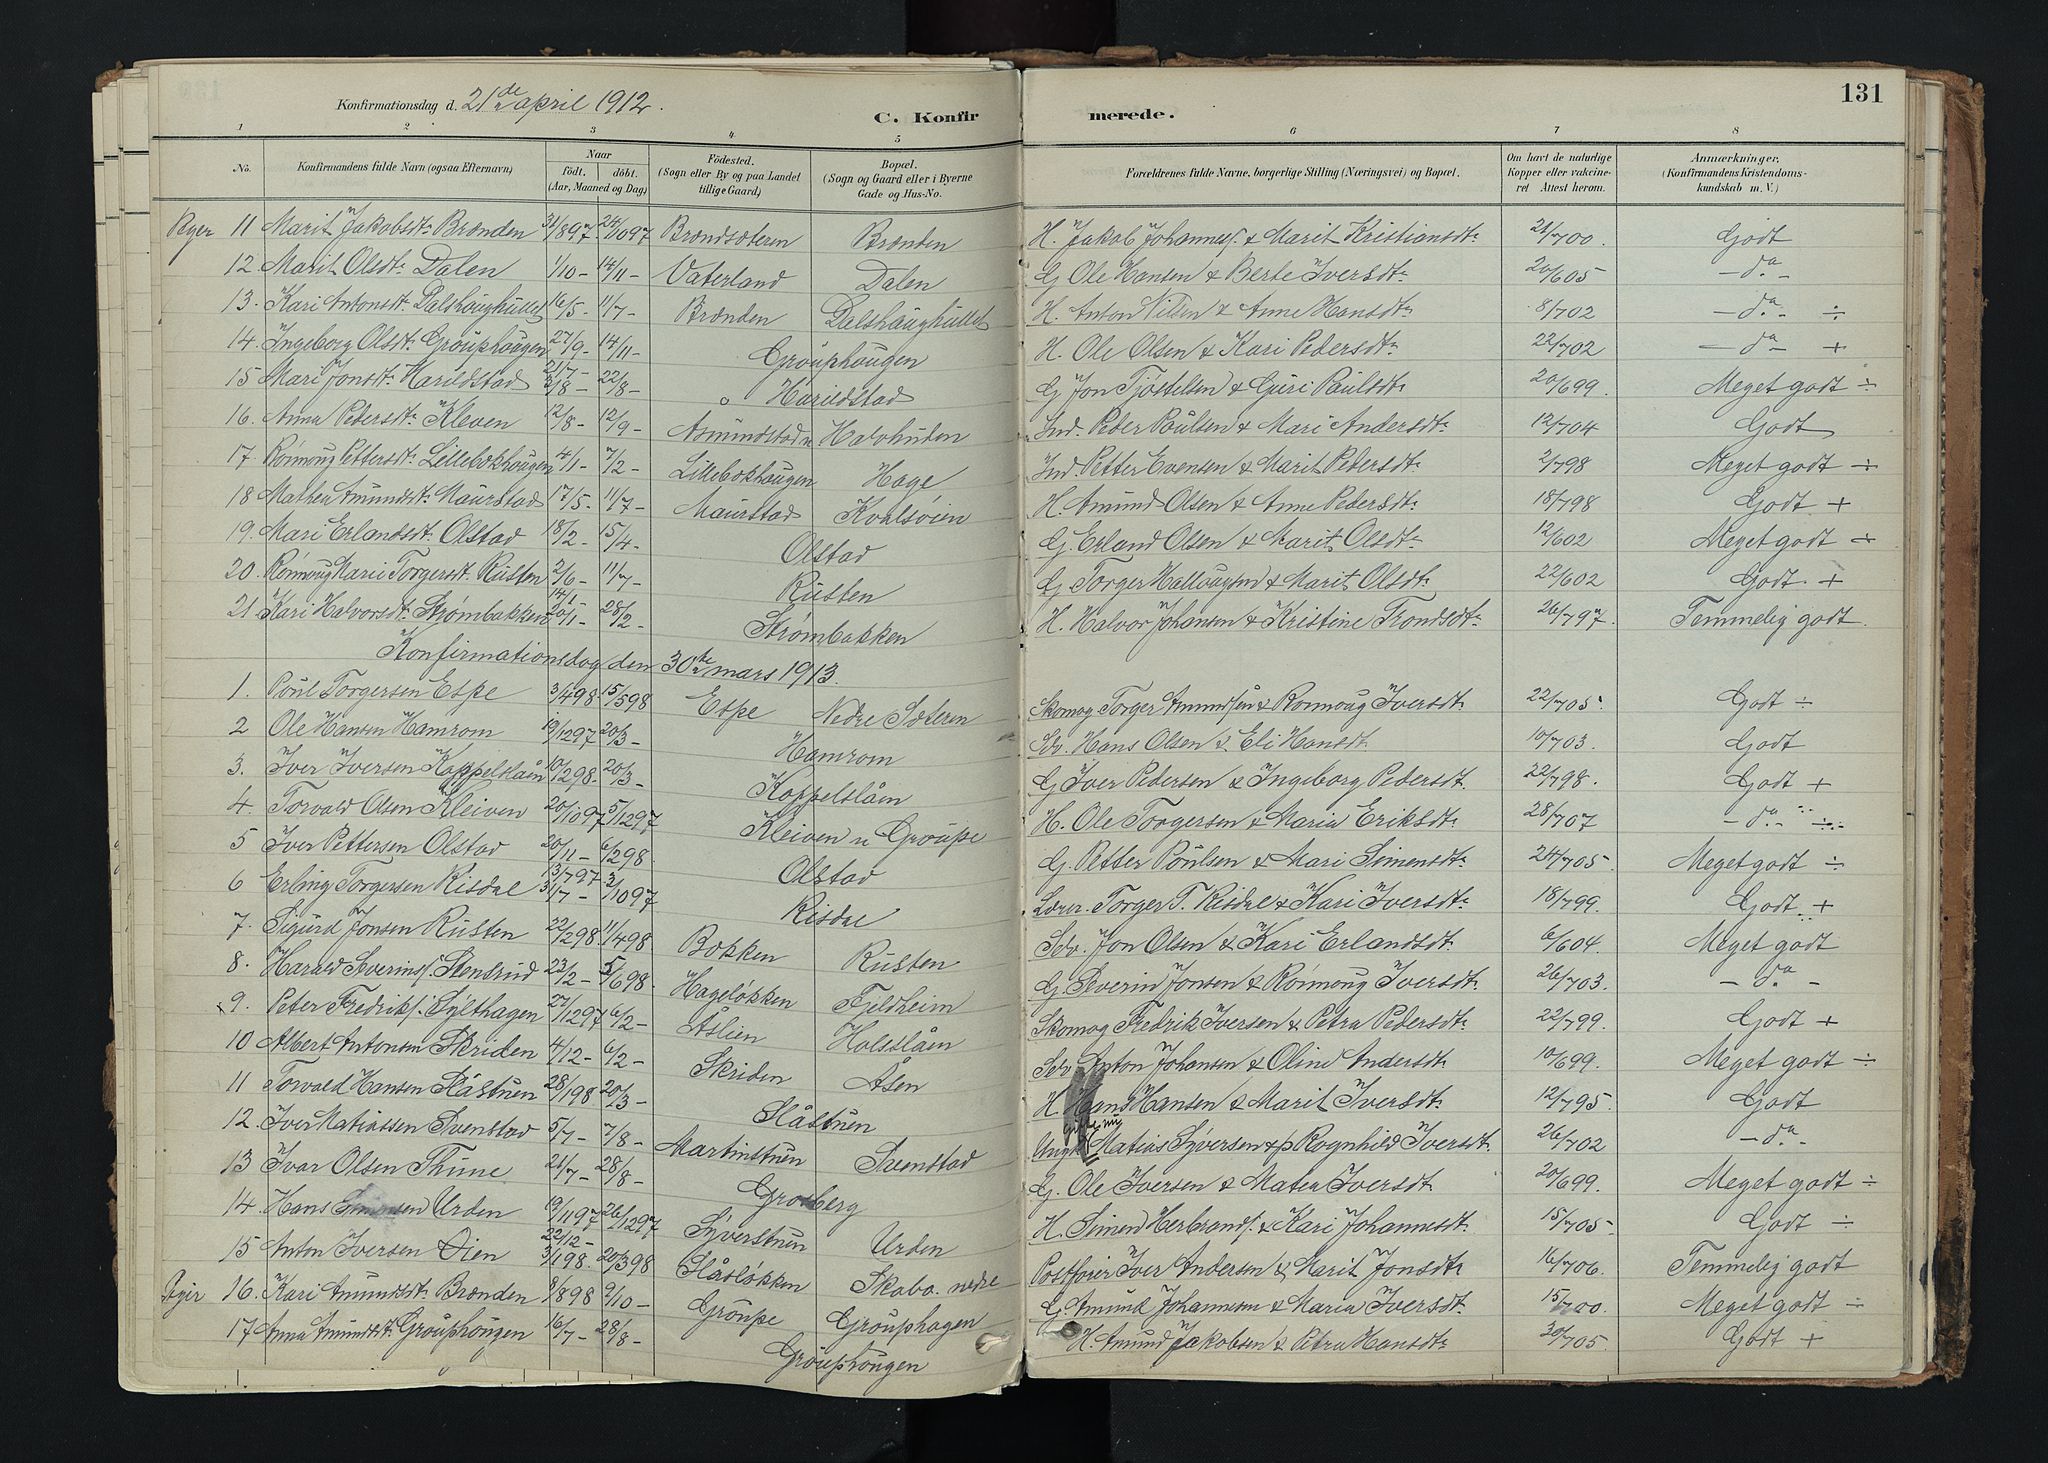 131
Konfirmationsdag d. 21de april 1912.
C. Konfirmerede.
1 2 3 4 5 6 7 8
No. Konfirmandens fulde Navn (ogsaa Efternavn) Naar födt. döbt. (Aar, Maaned og Dag) Födested. (Sogn eller By og paa Landet tillige Gaard) Bopæl. (Sogn og Gaard eller i Byerne Gade og Hus-No. Forældrenes fulde Navne, borgerlige Stilling (Næringsvei) og Bopæl. Om havt de naturlige Kopper eller vakcineret Attest herom. Anmærkninger. (Konfirmandens Kristendomskundskab m. V.)
11 Marit Jakobsdt. Brænden 31/897. 24/1097 Brændsæteren Brænden H. Jakob Johanness. & Marit Kristiansdt. 21/700. Godt
12 Marit Olsdt. Dalen 1/10- 14/11- Vaterland Dalen G. Ole Hansen & Berte Iversdt. 20/605 - do. -
13. Kari Antonsdt. Dalshaughullet 16/5- 11/7- Brænden Dalshaughullet H. Anton Nilsen & Anne Hansdt. 8/702 - do. - ÷
14. Ingeborg Olsdt. Grouphougen 27/9- 14/11- Grouphougen H. Ole Olsen & Kari Pedersdt. 22/702 - do - +
15 Mari Jonsdt. Harildstad 21/7- 3/8- 22/8- Harildstad G. Jon Tjøstelsen & Guri Paulsdt. 20/699. Meget godt ÷
16. Anna Pedersdt. Kleven 12/8- 12/9- Asmundstad Halvhuden Ind. Peder Poulsen & Mari Andersdt. 12/704 Godt
17 Rønnoug Pettersdt. Lillebækhougen 4/1- 7/2- Lillebækhougen Hage Ind. Petter Evensen & Marit Pedersdt. 2/798 Meget godt ÷
18 Mathea Amundsdt. Maurstad 17/5- 11/7- Maurstad Kvalsøien H. Amund Olsen & Anne Pedersdt. 18/798 Godt +
19. Mari Erlandsdt. Olstad 18/2- 15/4- Olstad G. Erland Olsen & Marit Olsdt. 12/602 Meget godt ÷
20. Rønnoug Marie Torgersdt. Rusten 2/6- 11/7- Rusten G. Torger & Marit Olsdt. 22/602 Godt +
21. Kari Halvorsdt. Strømbakken 14/1 20/1- 28/2- Strømbakken H. Halvor Johansen & Kristine Trondsdt. 26/797. Temmelig godt.
Konfirmationsdag den 30te mars 1913.
1. Poul Torgersen Espe 3/498 15/598 Espe Nedre Sæteren Skomag Torger Amundsen & Rønnoug Iversdt. 22/705. Godt ÷
2 Ole Hansen Hamrom 19/1297 20/3- Hamrom Selv. Hans Olsen & Eli Hansdt. 10/703. Godt
3. Iver Iversen Koppelslåen 10/298. 20/3- Koppelslåen G. Iver Pedersen & Ingeborg Pedersdt. 22/798. Godt +
4 Torvald Olsen Kleiven 20/1097 5/1297 Kleiven u Groupe H. Ole Torgersen & Maria Eriksdt. 28/707 - do. - ÷
5 Iver Pettersen Olstad 20/11- 6/298. Olstad G. Petter Poulsen & Mari Simensdt. 24/705. Meget godt ÷
6 Erling Torgersen Risdal 13/797 31/7- 3/1097 Risdal Lærer. Torger T. Risdal & Kari Iversdt. 18/799. Godt +
7. Sigurd Jonsen Rusten 22/298 11/498 Bækken Rusten Selv. Jon Olsen & Kari Erlandsdt. 6/604. Meget godt
8. Harald Severins. Stensrud 23/2- 5/698. Hageløkken Fjeldheim G. Severin Jonsen & Rønnoug Iversdt. 26/703. - do. -
9. Peter Fredriks. Sylthagen 27/1297 6/2- Åslien Holsslåen Skomag Fredrik Iversen & Petra Pedersdt. 22/799. Godt +
10 Albert Antonsen Skriden 4/12- 6/2- Skriden Åsen Selv Anton Johansen & Oline Andersdt. 10/699. Meget godt ÷
11 Torvald Hansen Slåstuen 28/198 20/3- Slåstuen H. Hans Hansen & Marit Iversdt. 12/795. Godt
12. Iver Matiassen Svenstad 5/7- 7/8- Martinstuen Svenstad Matias Syversen & p Rognhild Iversdt. 26/702 - do. -
13 Ivar Olsen Thune 21/7- 28/8- Grosberg G. Ole Iversen & Matea Iversdt. 20/699. Meget godt ÷
14. Hans Simensen Urden 19/1197 26/1297 Syverstuen Urden H. Simen Herbrands. & Kari Johannesdt. 15/705- Godt ÷
15 Anton Iversen Øien 22/12- 3/198. 20/398 Slåsløkken Skabo. nedre Postfører Iver Andersen & Marit Jonsdt. 16/706. Temmelig godt
16. Kari Amundsdt. Brænden 8/898 9/10- Groupe Grouphagen G. Amund Johannesen & Maria Iversdt. 15/700. Meget godt ÷
17 Anna Amundsdt. Grouphougen 16/7- 28/8- Grouphougen H. Amund Jakobsen & Petra Hansdt. 30/705 Godt +